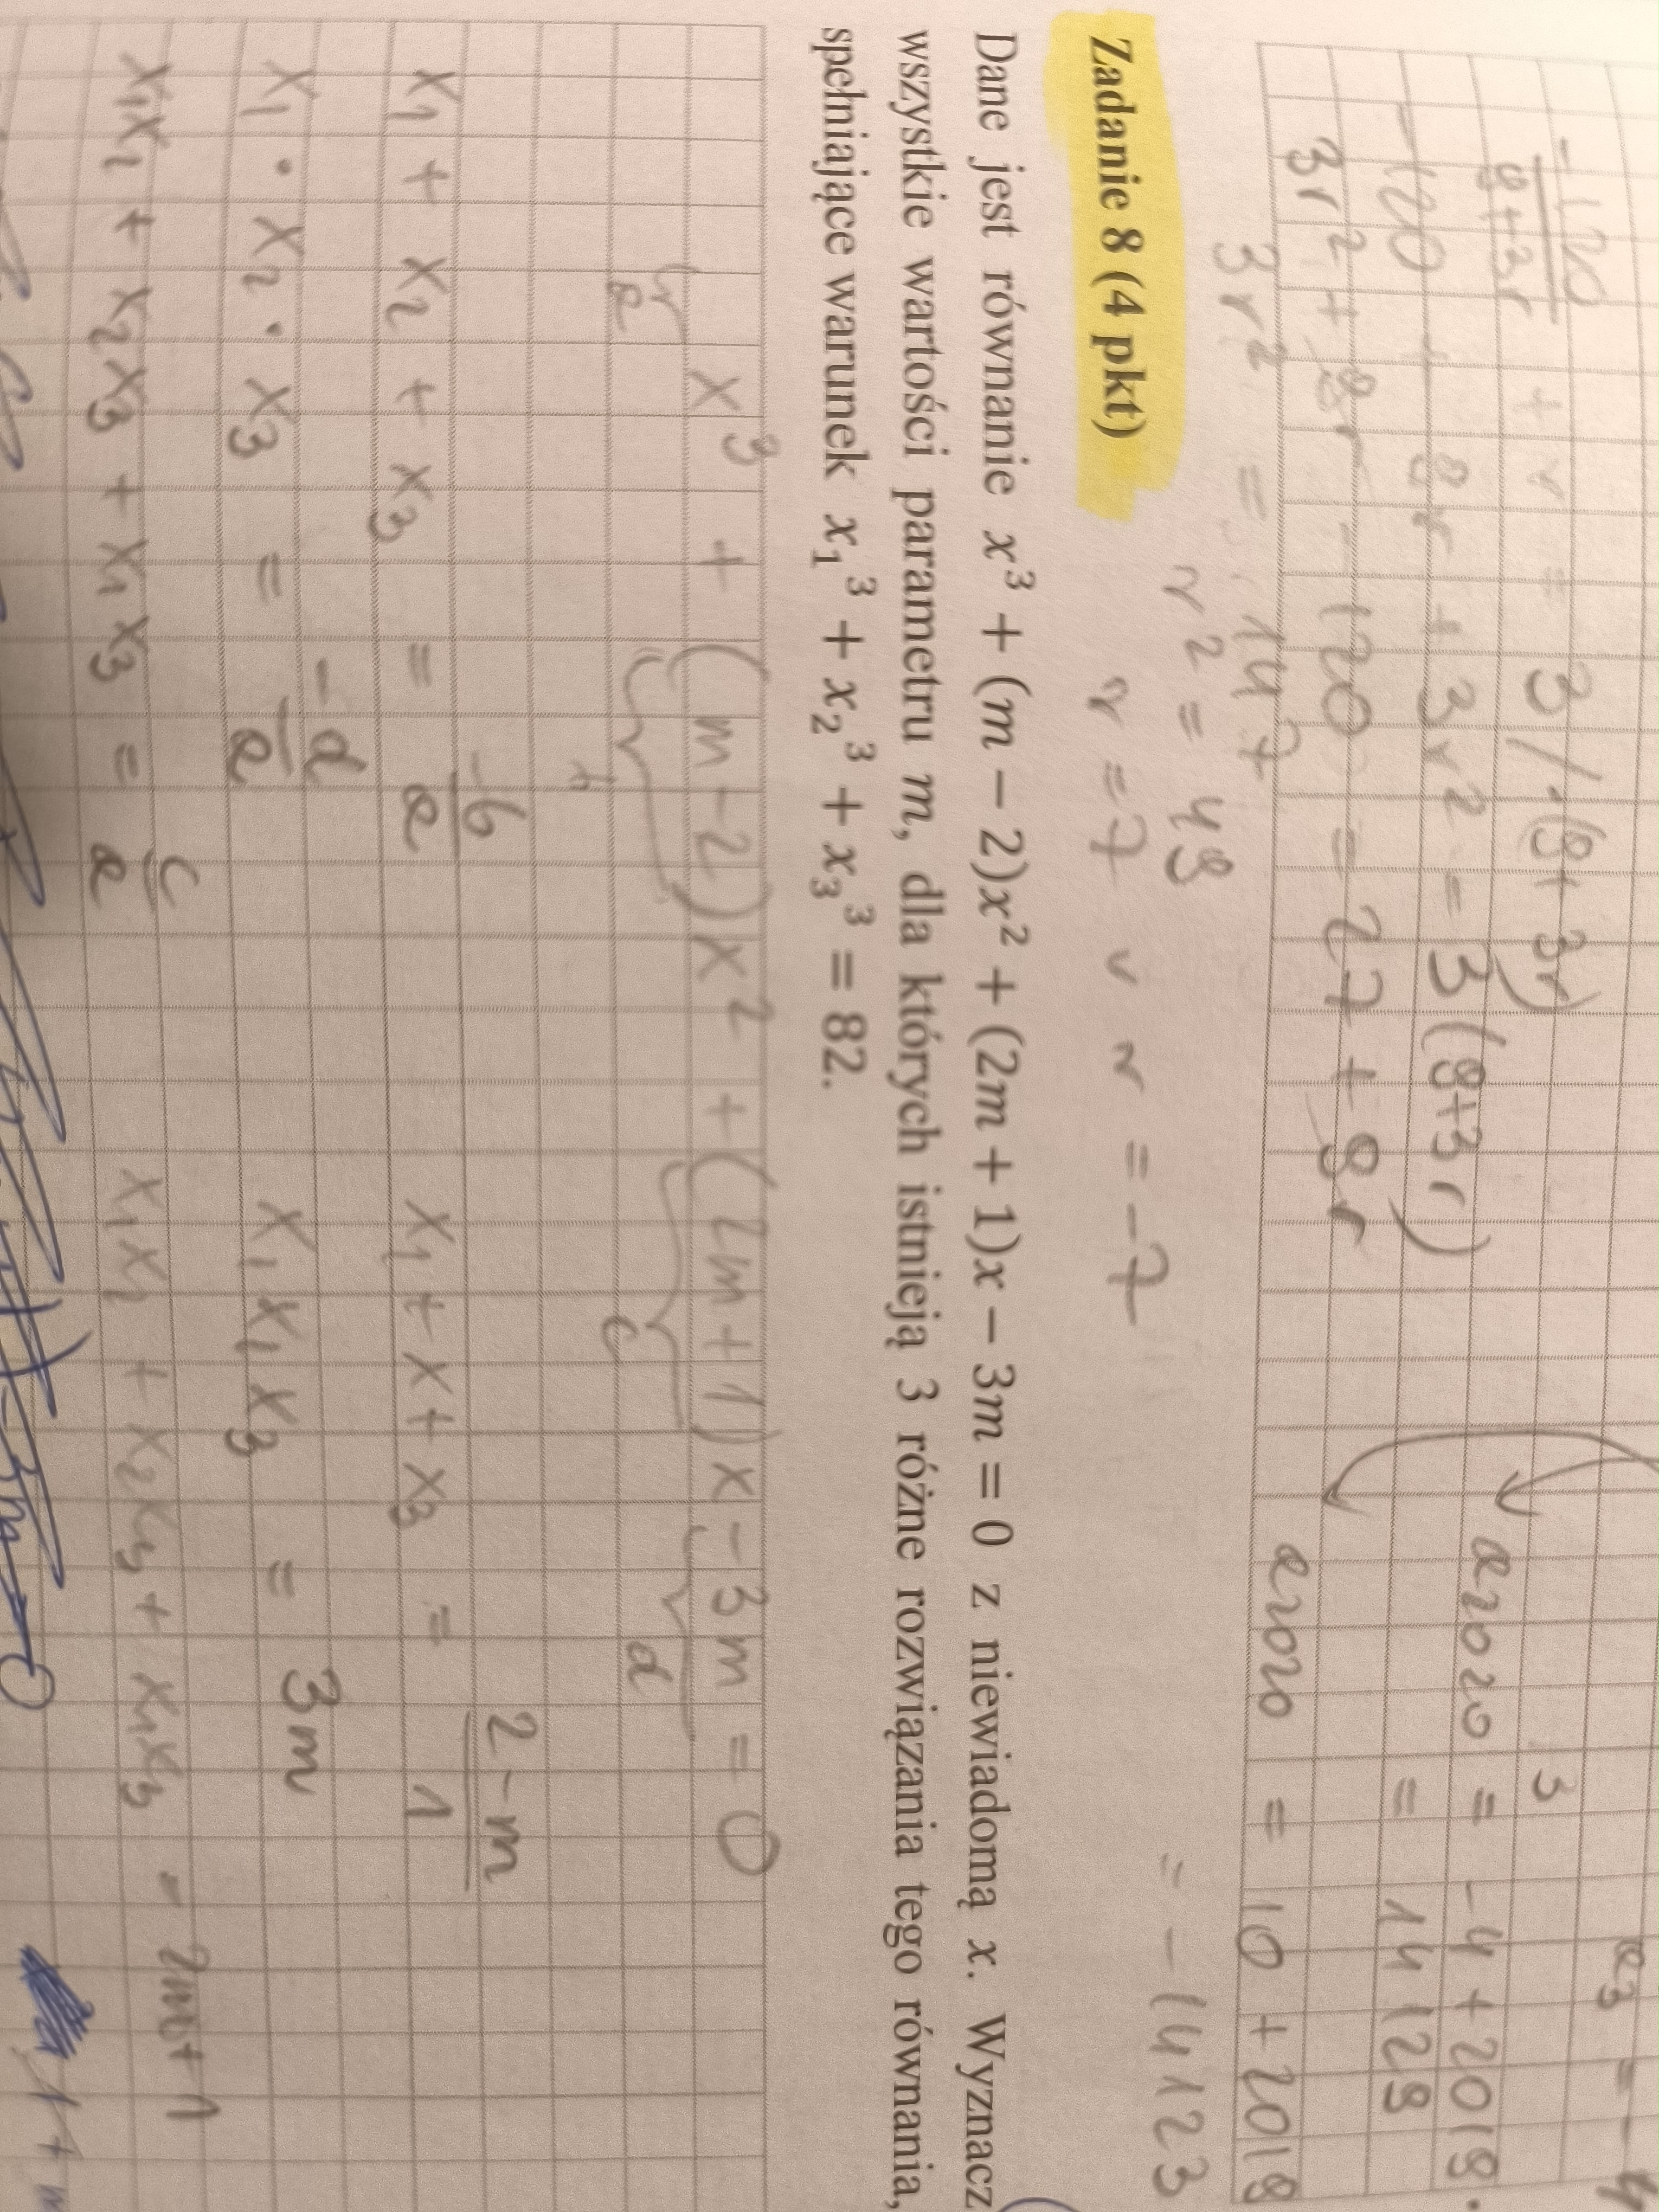 a₃ = -4
-120/(9+3r) + r = 3 /·(9+3r)
3
-120 + 9r + 3r² = 3(9+3r)
a₂₀₂₀ = -4 + 2019·
3r² + 9r - 120 = 27 + 9r
= 14129
3r² = 147
a₂₀₂₀ = 10 + 2019
r² = 49
= -14123
r = 7 v r = -7
Zadanie 8 (4 pkt)
Dane jest równanie x³ + (m − 2)x² + (2m + 1)x − 3m = 0 z niewiadomą x. Wyznacz
wszystkie wartości parametru m, dla których istnieją 3 różne rozwiązania tego równania,
spełniające warunek x₁³ + x₂³ + x₃³ = 82.
x³ + (m-2)x² + (2m+1)x - 3m = 0
a b c d
x₁ + x₂ + x₃ = -b/a x₁ + x + x₃ = (2-m)/1
x₁ · x₂ · x₃ = -d/a x₁x₁x₃ = 3m
x₁x₂ + x₂x₃ + x₁x₃ = c/a x₁x₂ + x₂x₃ + x₁x₃ = 2m+1